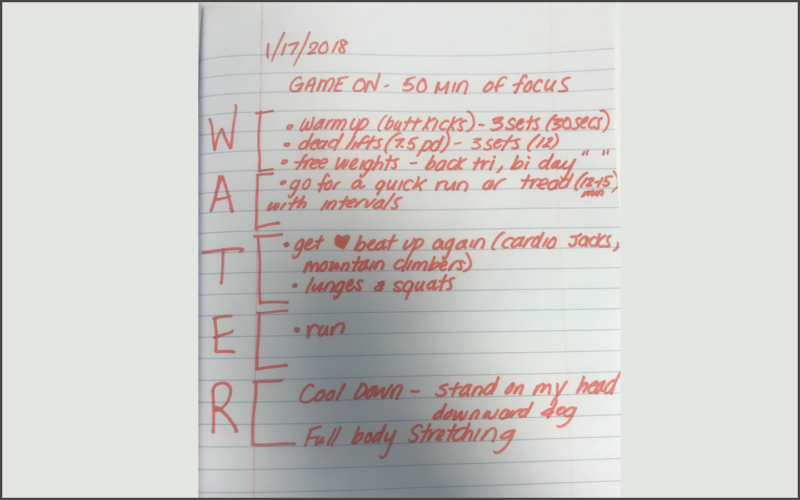 1/17/2018
GAME ON - 50 MIN OF FOCUS
W
• warm up (butt kicks) - 3 sets (30secs)
• dead lifts (7.5 pd) - 3 sets (12)
• free weights - back tri, bi day " "
A
• go for a quick run or tread (12-15 min)
with intervals
T
• get ♥ beat up again (cardio Jacks,
mountain climbers)
• lunges & squats
E
• run
R
Cool Down - stand on my head
downward dog
Full body Stretching